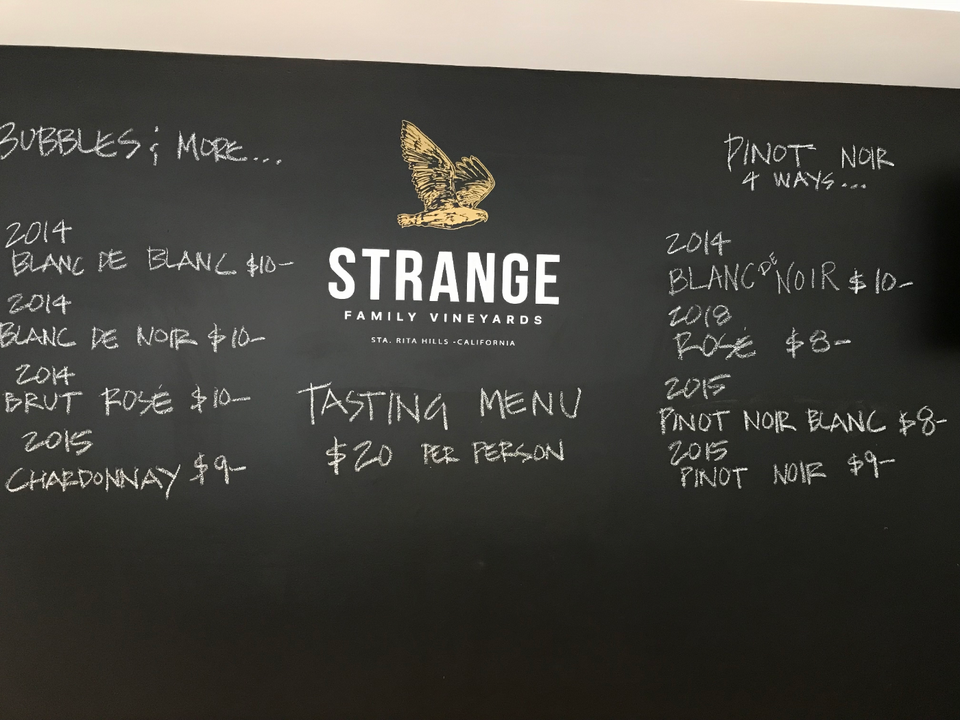 BUBBLES & MORE...
2014
BLANC DE BLANC $10-
2014
BLANC DE NOIR $10-
2014
BRUT ROSÉ $10-
2015
CHARDONNAY $9-
STRANGE
FAMILY VINEYARDS
STA. RITA HILLS -CALIFORNIA
TASTING MENU
$20 PER PERSON
PINOT NOIR
4 WAYS...
2014
BLANC DE NOIR $10-
2018
ROSÉ $8-
2015
PINOT NOIR BLANC $8-
2015
PINOT NOIR $9-